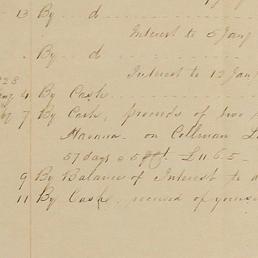 13 By d
Interest to 5 Jany
. By d
Interest to 12 Jany
4 By Cash
7 By Cash, proceeds of two
Havana on Coleman
57 days a 5 £1165
9 By Balance of Interest to
11 By Cash, received of